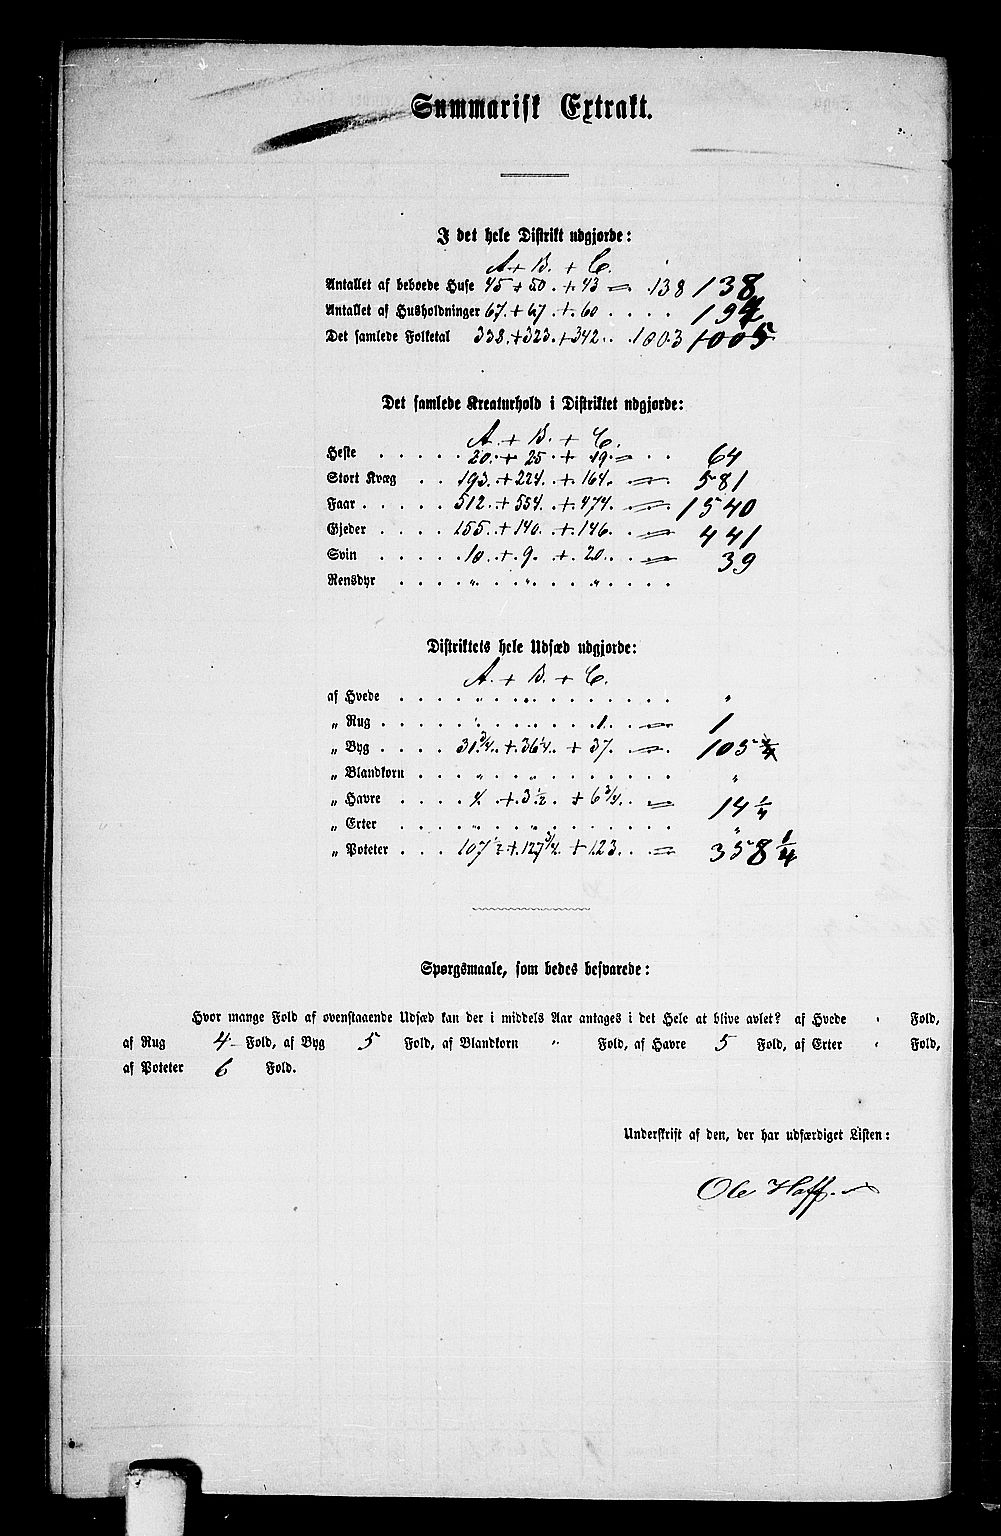 Summarisk Extrakt.
I det hele Distrikt udgjorde:
A + B. + C.
Antallet af beboede Huse 45 + 50 . + 43 = 138 138
Antallet af Husholdninger 67. + 67 + 60 . . . . 194
Det samlede Folketal 338. + 323. + 342. . . 1003 1005
Det samlede Kreaturhold i Distriktet udgjorde:
A. + B. + C.
Heste . . . . . 20. + 25 + 19. = . . 64
Stort Kvæg . . 193. + 224. + 164. = 581
Faar . . . . . 512. + 554. + 474. = 1540
Gjeder . . . . 155. + 140. + 146. = 441
Svin . . . . 10 + 9. + 20. . = 39
Rensdyr . . . . „ . . „ . . . „ . . . .
Distriktets hele Udsæd udgjorde:
A. + B. + C.
af Hvede . . . . „ . . „ . . . . . . „
„ Rug . . . . „ . . „ . . . 1. . = 1
„ Byg . . . . 31 3/4. + 36 1/4. + 37. = 105
„ Blandkorn . . . „ . . „ . . . . . . „
„ Havre . . . . 4 + 3 1/2 . + 6 3/4. . = 14 1/4
„ Erter . . . . „ . . „ . . . . . . „
„ Poteter . . . 107 1/2 + 127 3/4. + 123. . = 358 1/4
Spørgsmaale, som bedes besvarede:
Hvor mange Fold af ovenstaaende Udsæd kan der i middels Aar antages i det Hele at blive avlet? af Hvede „ Fold,
af Rug 4 - Fold, af Byg 5 Fold, af Blandkorn „ Fold, af Havre 5 Fold, af Erter „ Fold,
af Poteter 6 Fold.
Underskrift af den, der har udfærdiget Listen:
Ole Hoff.